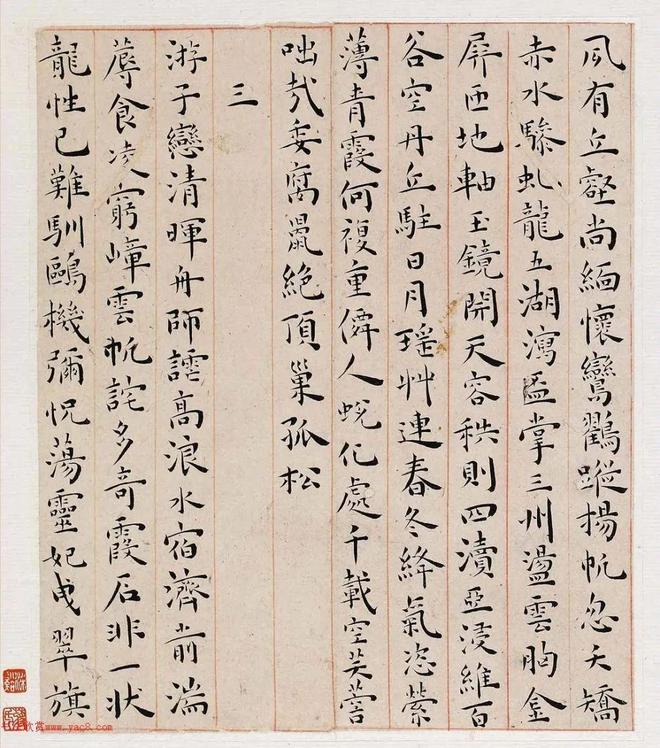 夙有丘壑尚緬懷鸞鸛蹤揚帆忽夭矯
赤水驂虬龍五湖瀉盃掌三州盪雲胸金
屏匝地軸玉鏡開天容秩則四瀆亞浸維百
谷空丹丘駐日月瑤艸連春冬絳氣恣縈
薄青霞何複重僊人蛻化處千載空芙蓉
咄哉委腐鼠絕頂巢孤松
三
游子戀清暉舟師高浪水宿濟前湍
蓐食凌窮嶂雲帆詫多奇霞石非一状
龍性已難馴鷗機彌怳蕩靈妃曳翠旗
欣赏www.yac8.com